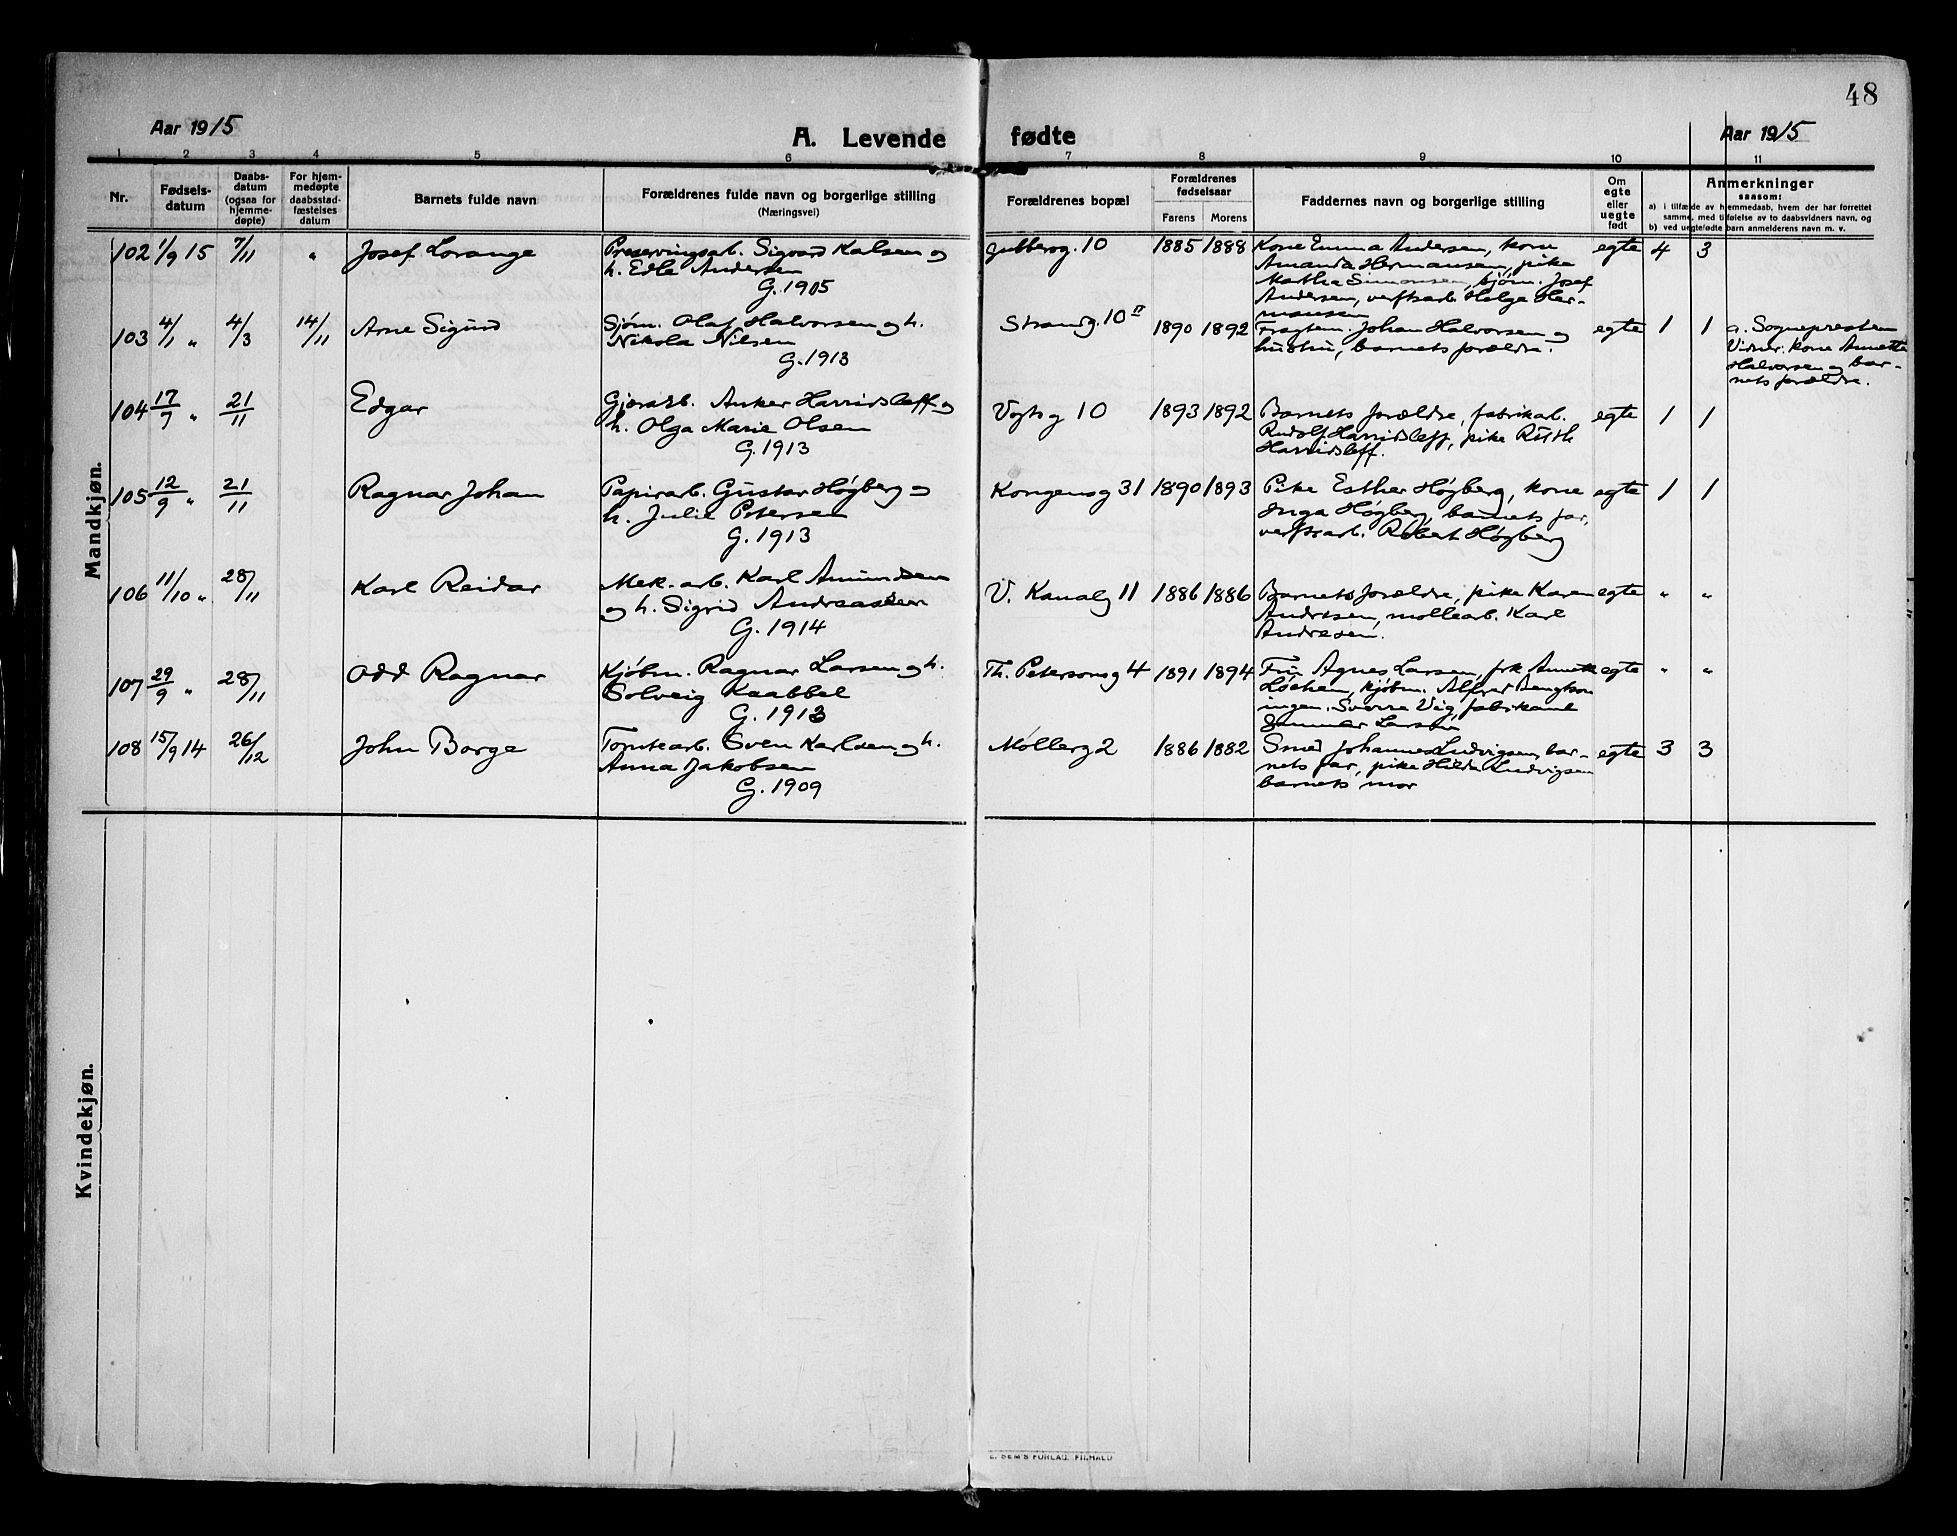 48
Aar 1915
A. Levende fødte
Aar 1915
1 2 3 4 5 6 7 8 9 10 11
Nr.
Fødsels-
datum
Daabs-
datum
(ogsaa for
hjemme-
døpte)
For hjem-
medøpte
daabsstad-
fæstelses
datum
Barnets fulde navn
Forældrenes fulde navn og borgerlige stilling
(Næringsvei)
Forældrenes bopæl
Forældrenes
fødselsaar
Farens Morens
Faddernes navn og borgerlige stilling
Om
egte
eller
uegte
født
Anmerkninger
saasom:
a) i tilfælde av hjemmedaab, hvem der har forrettet
samme, med tilføielse av to daabsvidners navn, og
b) ved uegtefødte barn anmelderens navn m. v.
Mandkjøn.
102 1/9 15 7/11 " Josef Lorange
Preservingsarb. Sigvard Kalsen og
h. Edle Andersen
G. 1905
10 1885 1888
Kone Emma Andersen, kone
Amanda Hermansen, pike
Martha Simonsen, sjøm. Josef
Andersen, verftsarb. Helge Her-
mansen
egte 4 3
103 4/1 " 4/3 14/11 Arne Sigurd
Sjøm. Olaf Halvorsen og h.
Nikola Nilsen
G. 1913
Strandg. 10 II 1890 1892
Fragtem. Johan Halvorsen og
hustru, barnets forældre.
egte 1 1
a. Sognepresten
Vidner: kone Annette
Halvorsen og bar-
nets forældre.
104 17/7 " 21/11 Edgar
Anker Harridsleff og
h. Olga Marie Olsen
G. 1913
Vogtsg 10 1893 1892
Barnets forældre, fabrikarb.
Rudolf Harridsleff, pike Ruth
Harridsleff.
egte 1 1
105 12/9 " 21/11 Ragnar Johan
Papirarb. Gustav Høgberg og
h. Julie Petersen
G. 1913
Kongensg 31 1890 1893
Pike Esther Høgberg, kone
Inga Høgberg, barnets far,
verftsarb. Robert Høgberg
egte 1 1
106 11/10 " 28/11 Karl Reidar
Mek. arb. Karl Amundsen
og h. Sigrid Andreassen
G. 1914
V. Kanalg 11 1886 1886
Barnets forældre, pike Karen
Andresen, møllearb. Karl
Andresen.
egte " "
107 29/9 " 28/11 Odd Ragnar
Kjøbm. Ragnar Larsen og h.
Solveig Kaabbel
G. 1913
Th. Petersonsg 4 1891 1894
Fru Agnes Larsen, frk Annette
kjøbm. Alfred
ingen. Sverre Vig, fabrikant
Larsen
egte " "
108 15/9 14 26/12 John Borge
Tomtearb. Sven Karlsen og h.
Anna Jakobsen
G. 1909
Møllerg 2 1886 1882
Smed Johannes Ludvigsen, bar-
nets far, pike Hilda Ludvigsen
barnets mor
egte 3 3
Kvindekjøn.
E. SEM'S FORLAG, FR.HALD